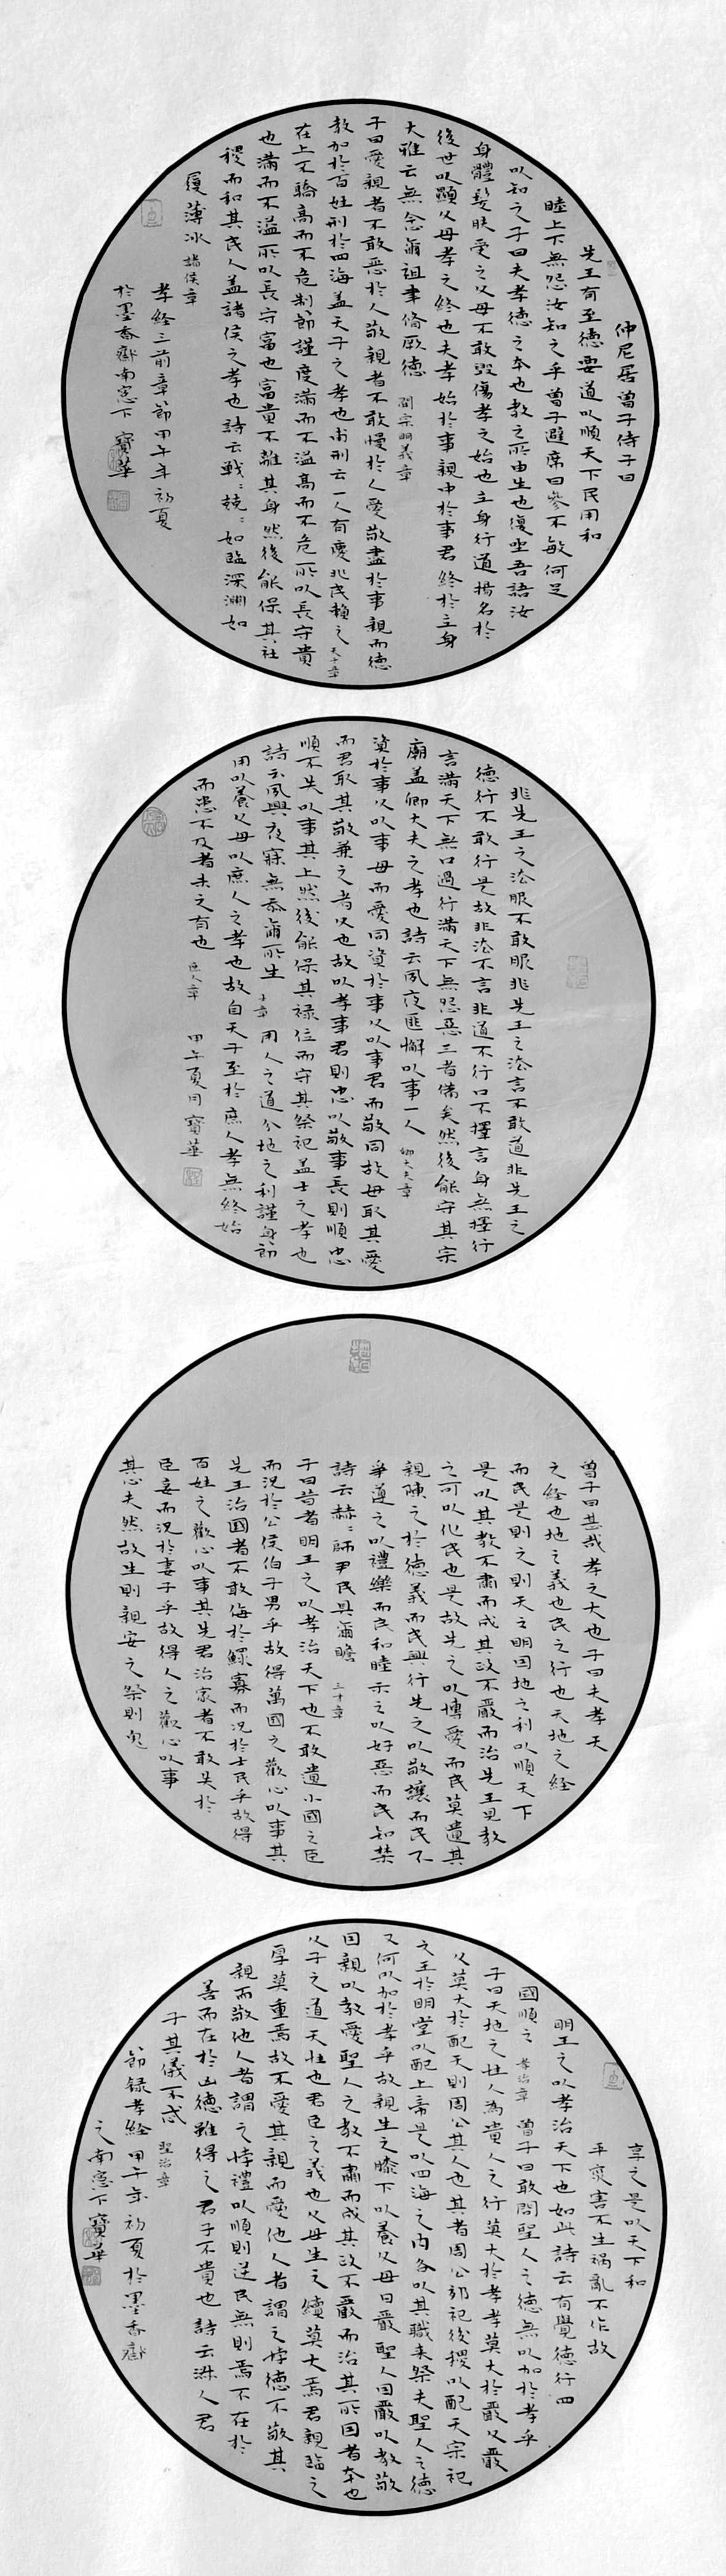 仲尼居曾子侍子曰
先王有至德要道以順天下民用和
睦上下無怨汝知之乎曾子避席曰參不敏何足
以知之子曰夫孝德之本也教之所由生也復坐吾語汝
身體髮膚受之父母不敢毀傷孝之始也立身行道揚名於
後世以顯父母孝之終也夫孝始於事親中於事君終於立身
大雅云無念爾祖聿脩厥德 開宗明義章
子曰愛親者不敢惡於人敬親者不敢慢於人愛敬盡於事親而德
教加於百姓刑於四海盖天子之孝也甫刑云一人有慶兆民賴之 天子章
在上不驕高而不危制節謹度滿而不溢高而不危所以長守貴
也滿而不溢所以長守富也富貴不離其身然後能保其社
稷而和其民人盖諸侯之孝也詩云戰:兢:如臨深淵如
履薄冰 諸侯章
孝經三前章節甲午年初夏
於墨香 南窓下 寶華
非先王之法服不敢服非先王之法言不敢道非先王之
德行不敢行是故非法不言非道不行口不擇言身無擇行
言滿天下無口過行滿天下無怨惡三者備矣然後能守其宗
廟盖卿大夫之孝也詩云夙夜匪懈以事一人 卿大夫章
資於事父以事母而愛同資於事父以事君而敬同故母取其愛
而君取其敬兼之者父也故以孝事君則忠以敬事長則順忠
順不失以事其上然後能保其祿位而守其祭祀盖士之孝也
詩云夙興夜寐無忝爾所生 士章 用人之道分地之利謹身節
用以養父母以庶人之孝也故自天子至於庶人孝無終始
而患不及者未之有也 庶人章 甲午夏月 寶華
曾子曰甚哉孝之大也子曰夫孝天
之經也地之義也民之行也天地之經
而民是則之則天之明因地之利以順天下
是以其教不肅而成其政不嚴而治先王見教
之可以化民也是故先之以博愛而民莫遺其
親陳之於德義而民興行先之以敬讓而民不
爭導之以禮樂而民和睦示之以好惡而民知禁
詩云赫:師尹民具爾瞻 三才章
子曰昔者明王之以孝治天下也不敢遺小國之臣
而況於公侯伯子男乎故得萬國之歡心以事其
先王治國者不敢侮於鰥寡而況於士民乎故得
百姓之歡心以事其先君治家者不敢失於
臣妾而況於妻子乎故得人之歡心以事
其心夫然故生則親安之祭則鬼
享之是以天下和
平災害不生禍亂不作故
明王之以孝治天下也如此詩云有覺德行四
國順之 孝治章 曾子曰敢問聖人之德無以加於孝乎
子曰天地之性人為貴人之行莫大於孝孝莫大於嚴父嚴
父莫大於配天則周公其人也其者周公郊祀後稷以配天宗祀
文王於明堂以配上帝是以四海之内各以其職來祭夫聖人之德
又何以加於孝乎故親生之膝下以養父母日嚴聖人因嚴以教敬
因親以教愛聖人之教不肅而成其政不嚴而治其所因者本也
父子之道天性也君臣之義也父母生之續莫大焉君親臨之
厚莫重焉故不愛其親而愛他人者謂之悖德不敬其
親而敬他人者謂之悖禮以順則逆民無則焉不在於
善而在於凶德雖得之君子不貴也詩云淑人君
子其儀不忒 聖治章
節錄孝經 甲午年初夏於墨香
之南窓下 寶華